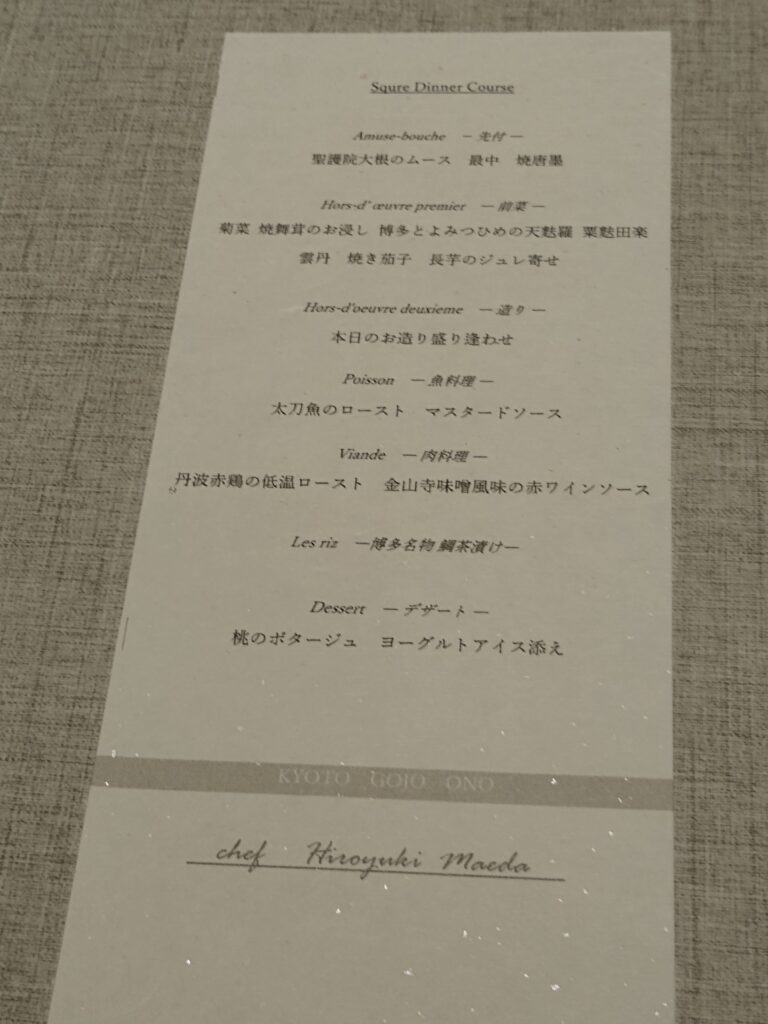 Squre Dinner Course
Amuse-bouche －先付－
聖護院大根のムース 最中 焼唐墨
Hors-d' œuvre premier －前菜－
菊菜 焼舞茸のお浸し 博多とよみつひめの天麩羅 粟麩田楽
雲丹 焼き茄子 長芋のジュレ寄せ
Hors-d'oeuvre deuxieme －造り－
本日のお造り盛り逢わせ
Poisson －魚料理－
太刀魚のロースト マスタードソース
Viande －肉料理－
丹波赤鶏の低温ロースト 金山寺味噌風味の赤ワインソース
Les riz －博多名物 鯛茶漬け－
Dessert －デザート－
桃のポタージュ ヨーグルトアイス添え
KYOTO GOJO ONO
chef Hiroyuki Maeda